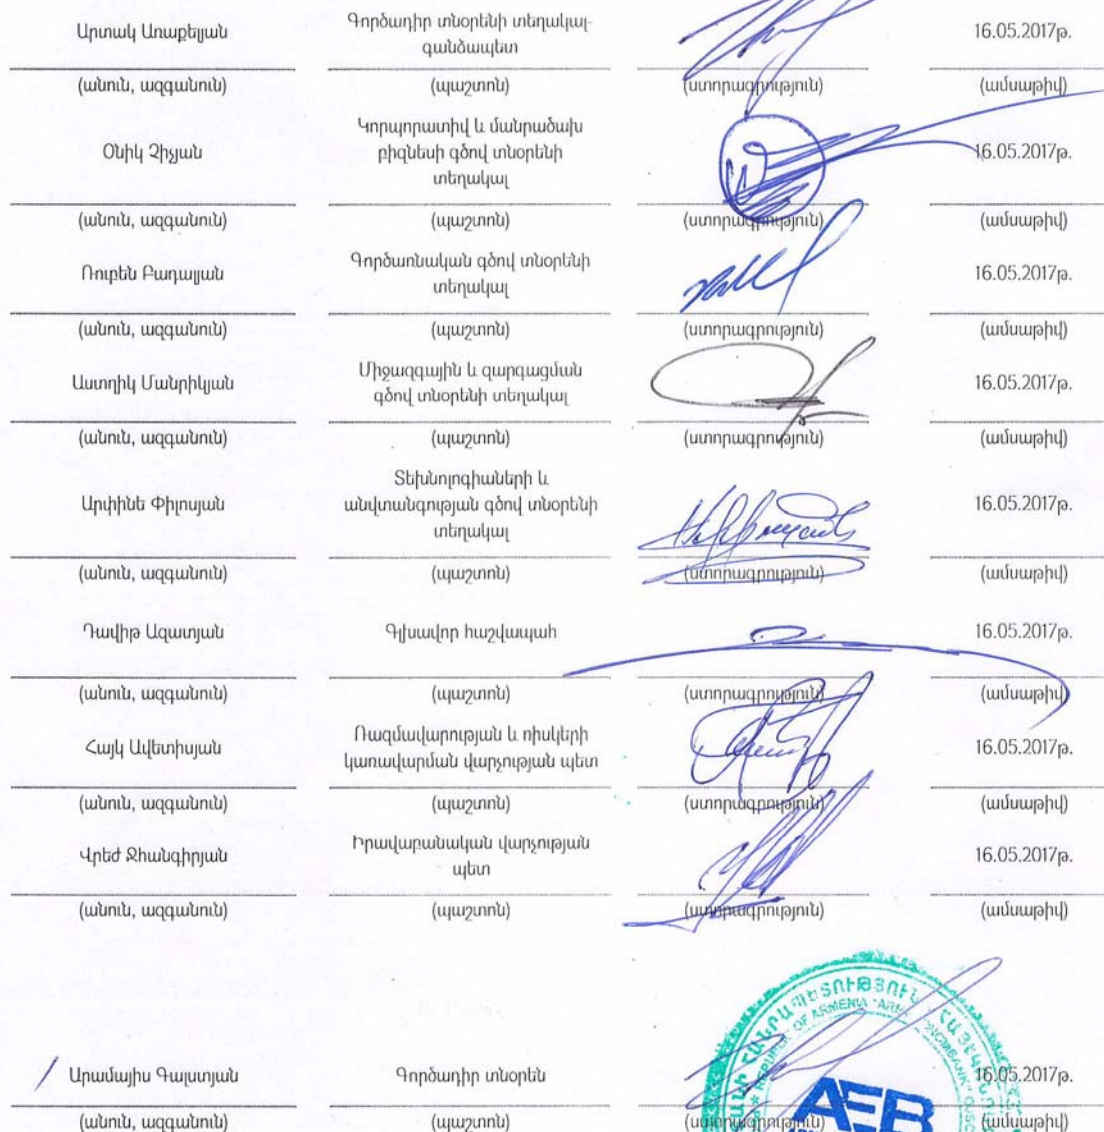 Արտակ Առաքելյան
Գործադիր տնօրենի տեղակալ-
գանձապետ
16.05.2017թ.
(անուն, ազգանուն) (պաշտոն) (ստորագրություն) (ամսաթիվ)
Օնիկ Չիչյան
Կորպորատիվ և մանրածախ
բիզնեսի գծով տնօրենի
տեղակալ
16.05.2017թ.
(անուն, ազգանուն) (պաշտոն) (ստորագրություն) (ամսաթիվ)
Ռուբեն Բադալյան
Գործառնական գծով տնօրենի
տեղակալ
16.05.2017թ.
(անուն, ազգանուն) (պաշտոն) (ստորագրություն) (ամսաթիվ)
Աստղիկ Մանրիկյան
Միջազգային և զարգացման
գծով տնօրենի տեղակալ
16.05.2017թ.
(անուն, ազգանուն) (պաշտոն) (ստորագրություն) (ամսաթիվ)
Արփինե Փիլոսյան
Տեխնոլոգիաների և
անվտանգության գծով տնօրենի
տեղակալ
16.05.2017թ.
(անուն, ազգանուն) (պաշտոն) (ստորագրություն) (ամսաթիվ)
Դավիթ Ազատյան
Գլխավոր հաշվապահ
16.05.2017թ.
(անուն, ազգանուն) (պաշտոն) (ստորագրություն) (ամսաթիվ)
Հայկ Ավետիսյան
Ռազմավարության և ռիսկերի
կառավարման վարչության պետ
16.05.2017թ.
(անուն, ազգանուն) (պաշտոն) (ստորագրություն) (ամսաթիվ)
Վրեժ Ջհանգիրյան
Իրավաբանական վարչության
պետ
16.05.2017թ.
(անուն, ազգանուն) (պաշտոն) (ստորագրություն) (ամսաթիվ)
OF ARMENIA
Արամայիս Գալստյան
Գործադիր տնօրեն
16.05.2017թ.
AEB
(անուն, ազգանուն) (պաշտոն) (ստորագրություն) (ամսաթիվ)